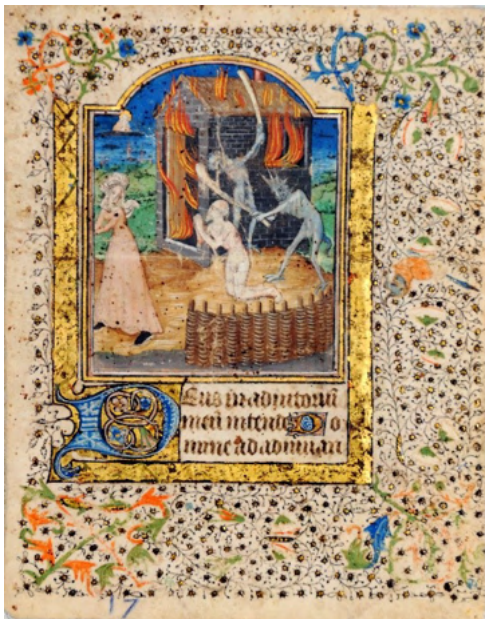 Deus in adiutoriū
meū intende Do
mine ad adiuuan
17